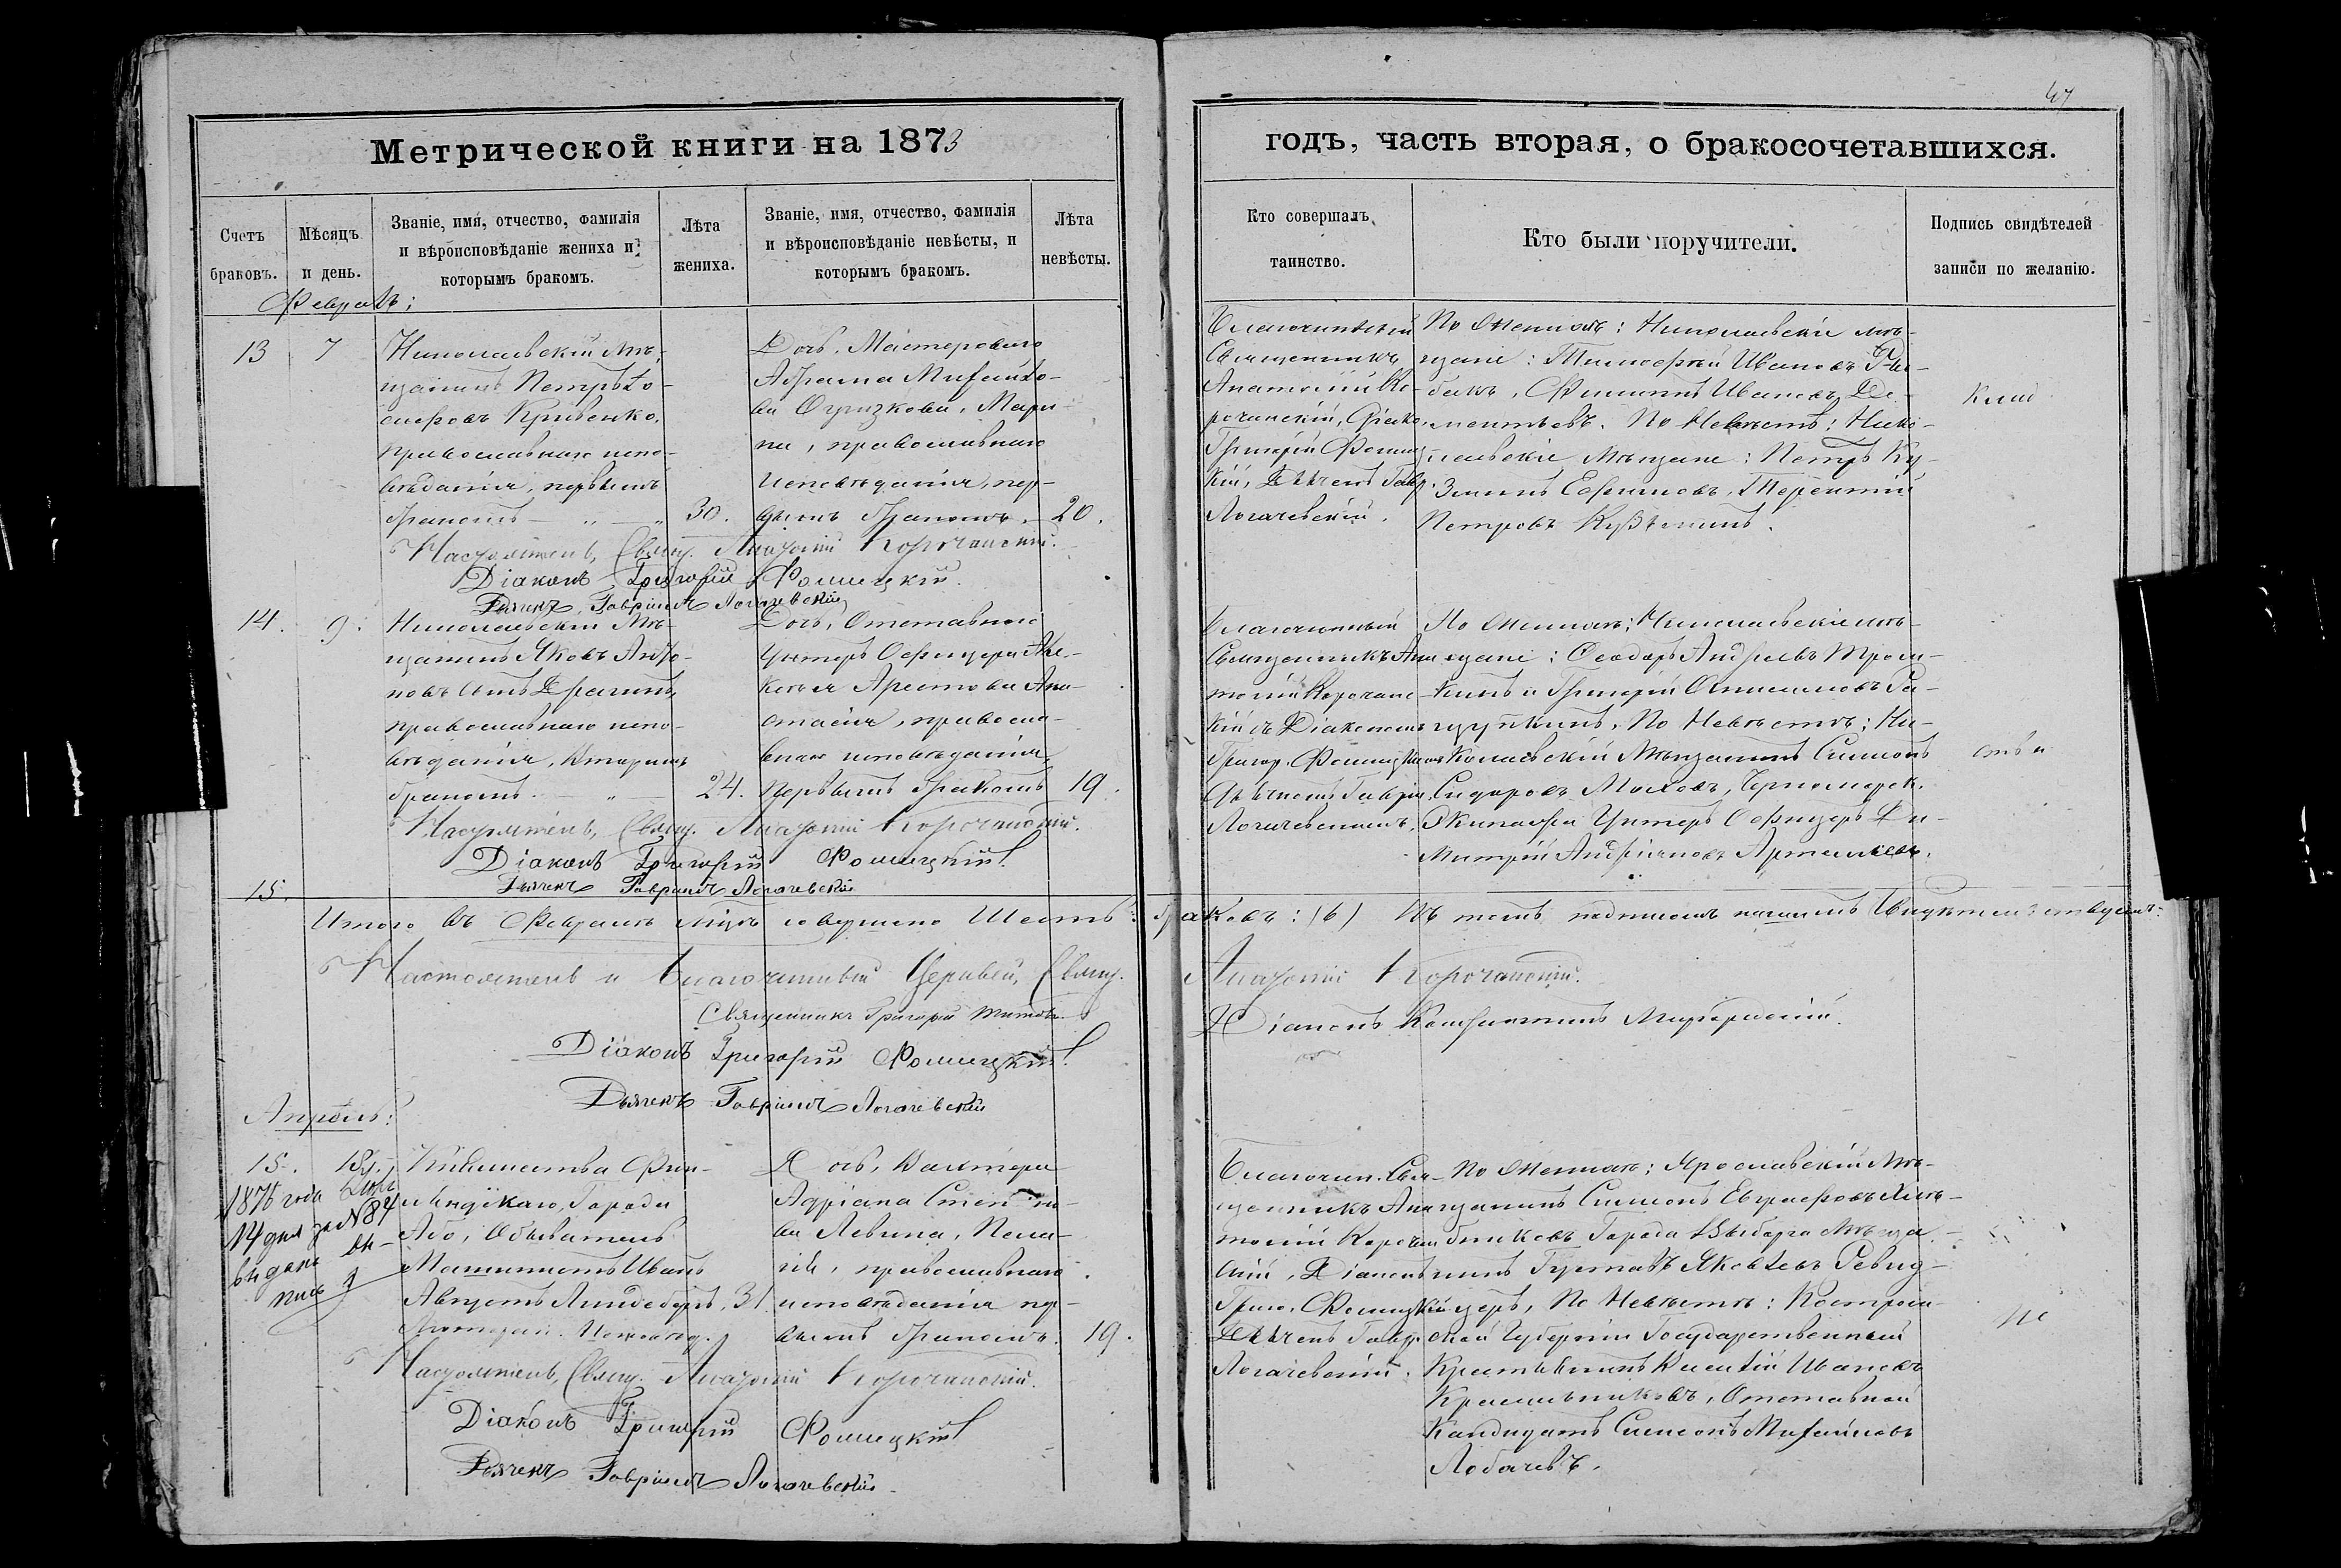 47
Метрической книги на 1873
годъ, часть вторая, о бракосочетавшихся.
Счетъ браковъ.
Мѣсяцъ и день.
Званіе, имя, отчество, фамилія и вѣроисповѣданіе жениха и которымъ бракомъ.
Лѣта жениха.
Званіе, имя, отчество, фамилія и вѣроисповѣданіе невѣсты, и которымъ бракомъ.
Лѣта невѣсты.
Кто совершалъ таинство.
Кто были поручители.
Подпись свидѣтелей записи по желанію.
Февраль:
13
7
Николаевскій мѣ-
щанинъ Петръ Іо-
сифовъ Кривенко,
православнаго испо-
вѣданія, первымъ
бракомъ
30.
Дочь, Мастероваго
Абрама Михайло-
ва Огризкова, Мари-
на, православнаго
исповѣданія, пер-
вымъ бракомъ.
20.
Благочинный
Священникъ
Анатолій Ко-
рочанскій, Діако.
Григорій Фомиц-
кій, Дьячекъ Гавр.
Логачевскій.
По Женихѣ: Николаевскіе мѣ-
щане: Тимофей Ивановъ Ры-
бакъ, Филиппъ Ивановъ Де-
ментьевъ. По Невѣстѣ: Нико-
лаевскіе Мѣщане: Петръ Ку-
зминъ Ефимовъ, Терентій
Петровъ
Настоятель, Свящ. Анатолій Корочанскій.
Діаконъ Григорій Фомицкій.
Дьячекъ Гавріилъ Логачевскій
14.
9.
Николаевскій Мѣ-
щанинъ Яковъ
новъ сынъ
православнаго испо-
вѣданія, вторымъ
бракомъ
24.
Дочь, Отставнаго
Унтеръ Офицера Але-
ксѣя Арестова Ана-
стасія, правосла-
внаго исповѣданія,
первымъ бракомъ
19.
Благочинный
Священникъ Ана
толій Корочанс-
кій съ Діакономъ
Григор. Фомицкимъ
Дьячкомъ Гавріи.
Логачевскимъ.
По Женихѣ: Николаевскіе мѣ-
щане: Феодоръ Андреевъ
кинъ и Григорій
По Невѣстѣ: Ни-
колаевскій Мѣщанинъ Симонъ
Сидоровъ Маховъ, Черноморск.
Экипажа Унтеръ Офицеръ Ди-
митрій Андріановъ
Настоятель, Свящ. Анатолій Корочанскій.
Діаконъ Григорій Фомицкій.
Дьячекъ Гавріилъ Логачевскій
15.
Итого въ Февралѣ мѣсяцѣ совершено Шесть: браковъ: (6) Въ томъ подписомъ нашимъ свидѣтельствуемъ:
Настоятель и Благочинный Церквей, Свящ. Анатолій Корочанскій.
Священникъ Григорій Титовъ.
Діаконъ Константинъ
Діаконъ Григорій Фомицкій.
Дьячекъ Гавріилъ Логачевскій
Апрѣль:
15.
1876 года
14 дня за № 84
выдана
пись
Княжества Фин-
ляндскаго, Города
Або, Обыватель
Машинистъ Иванъ
Августъ Линдебергъ,
Лютеран. Исповѣд.
31.
Дочь, Вахтера
Адріана Степано-
ва Левина, Пела-
гія, православнаго
исповѣданія пер-
вымъ бракомъ.
19.
Благочин. Свя-
щенникъ Ана
толій Корочан
скій, Діаконъ
Григо. Фомицкій
Дьячекъ Гавр.
Логачевскій.
По Женихѣ: Ярославскій Мѣ-
щанинъ Симонъ Евграфовъ Хлѣ-
бниковъ Города Выборга Мѣща-
нинъ Густавъ Яковлевъ
церъ, По Невѣстѣ: Костром-
ской Губерніи Государственный
Крестьянинъ Василій Ивановъ
Красильниковъ, Отставной
Кандидатъ Симеонъ Михайловъ
Лобачевъ.
Настоятель, Свящ. Анатолій Корочанскій.
Діаконъ Григорій Фомицкій
Дьячекъ Гавріилъ Логачевскій.